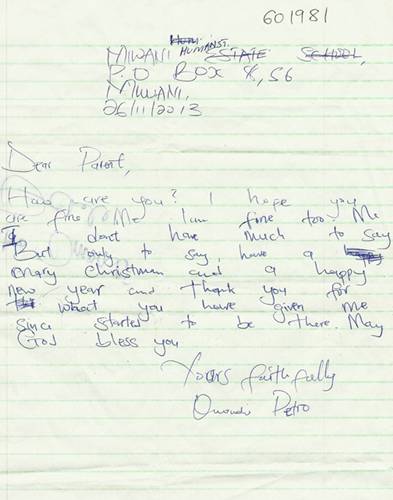 601981
MIWANI HUMANIST
P.O BOX 8,56
MIWANI,
26/11/2013
Dear Parent,
How are you? I hope you
are fine Me iam fine too. Me
I dont have much to say
But only to say, have a
mary christmas and a happy
new year and thank you for
what you have given me
since started to be there. May
God bless you
Yours faithfully
Omondi Petro